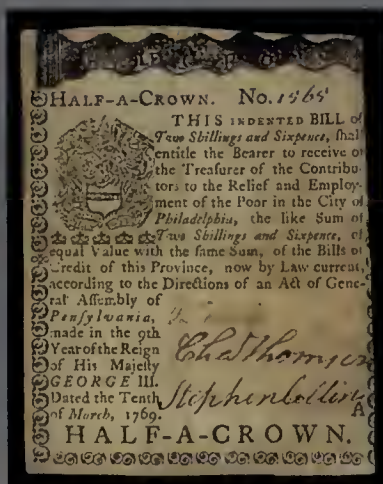 HALF-A-CROWN. No. 1565
THIS INDENTED BILL of
Two Shillings and Sixpence, shall
entitle the Bearer to receive of
the Treasurer of the Contribu-
tors to the Relief and Employ-
ment of the Poor in the City of
Philadelphia, the like Sum of
Two Shillings and Sixpence, of
equal Value with the same Sum, of the Bills of
Credit of this Province, now by Law current,
according to the Directions of an Act of Gene-
ral Assembly of
Pensylvania,
made in the 9th
Year of the Reign
of His Majesty
GEORGE III.
Dated the Tenth
of March, 1769.
Cha Thomson
Stephen Collins
A
HALF-A-CROWN.